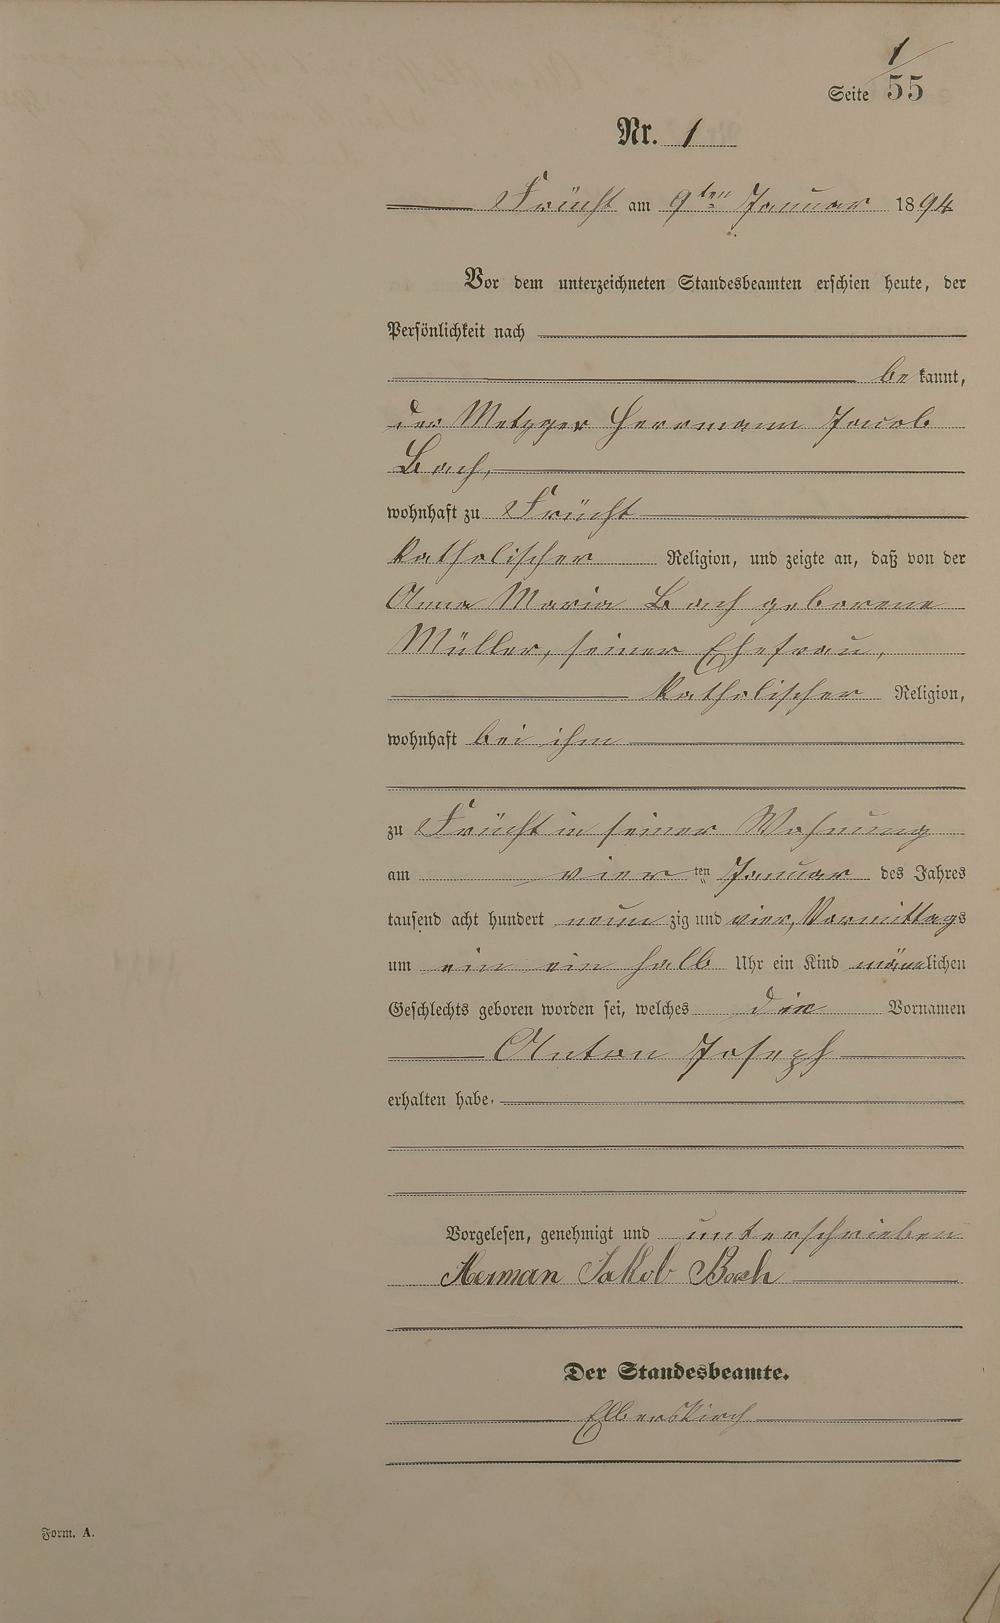 1
Seite 55
Nr. 1
Frücht am 9ten Januar 1894
Vor dem unterzeichneten Standesbeamten erschien heute, der
Persönlichkeit nach
bekannt,
der Metzger Herrmann Jacob
Bach,
wohnhaft zu Frücht
katholischer Religion, und zeigte an, daß von der
Anna Maria Bach geborene
Müller, seiner Ehefrau,
katholischer Religion,
wohnhaft bei ihm
zu Frücht in seiner Wohnung
am vierten Januar des Jahres
tausend acht hundert neunzig und vier, Vormittags
um ein ein halb Uhr ein Kind männlichen
Geschlechts geboren worden sei, welches die Vornamen
Anton Joseph
erhalten habe.
Vorgelesen, genehmigt und unterschrieben
Herman Jakob Bach
Der Standesbeamte.
Elberskirch
Form. A.